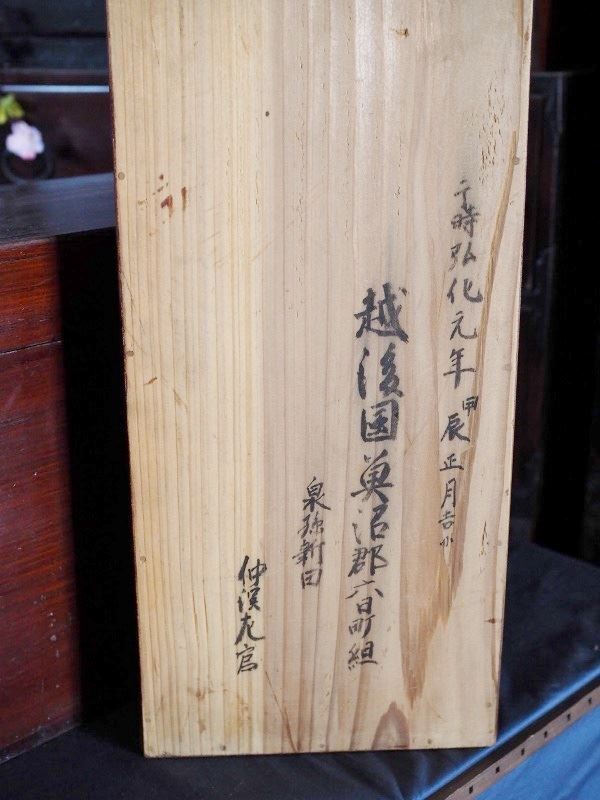 于時弘化元年甲辰正月吉
越後国魚沼郡六日町組
泉弥新田
仲溪左官